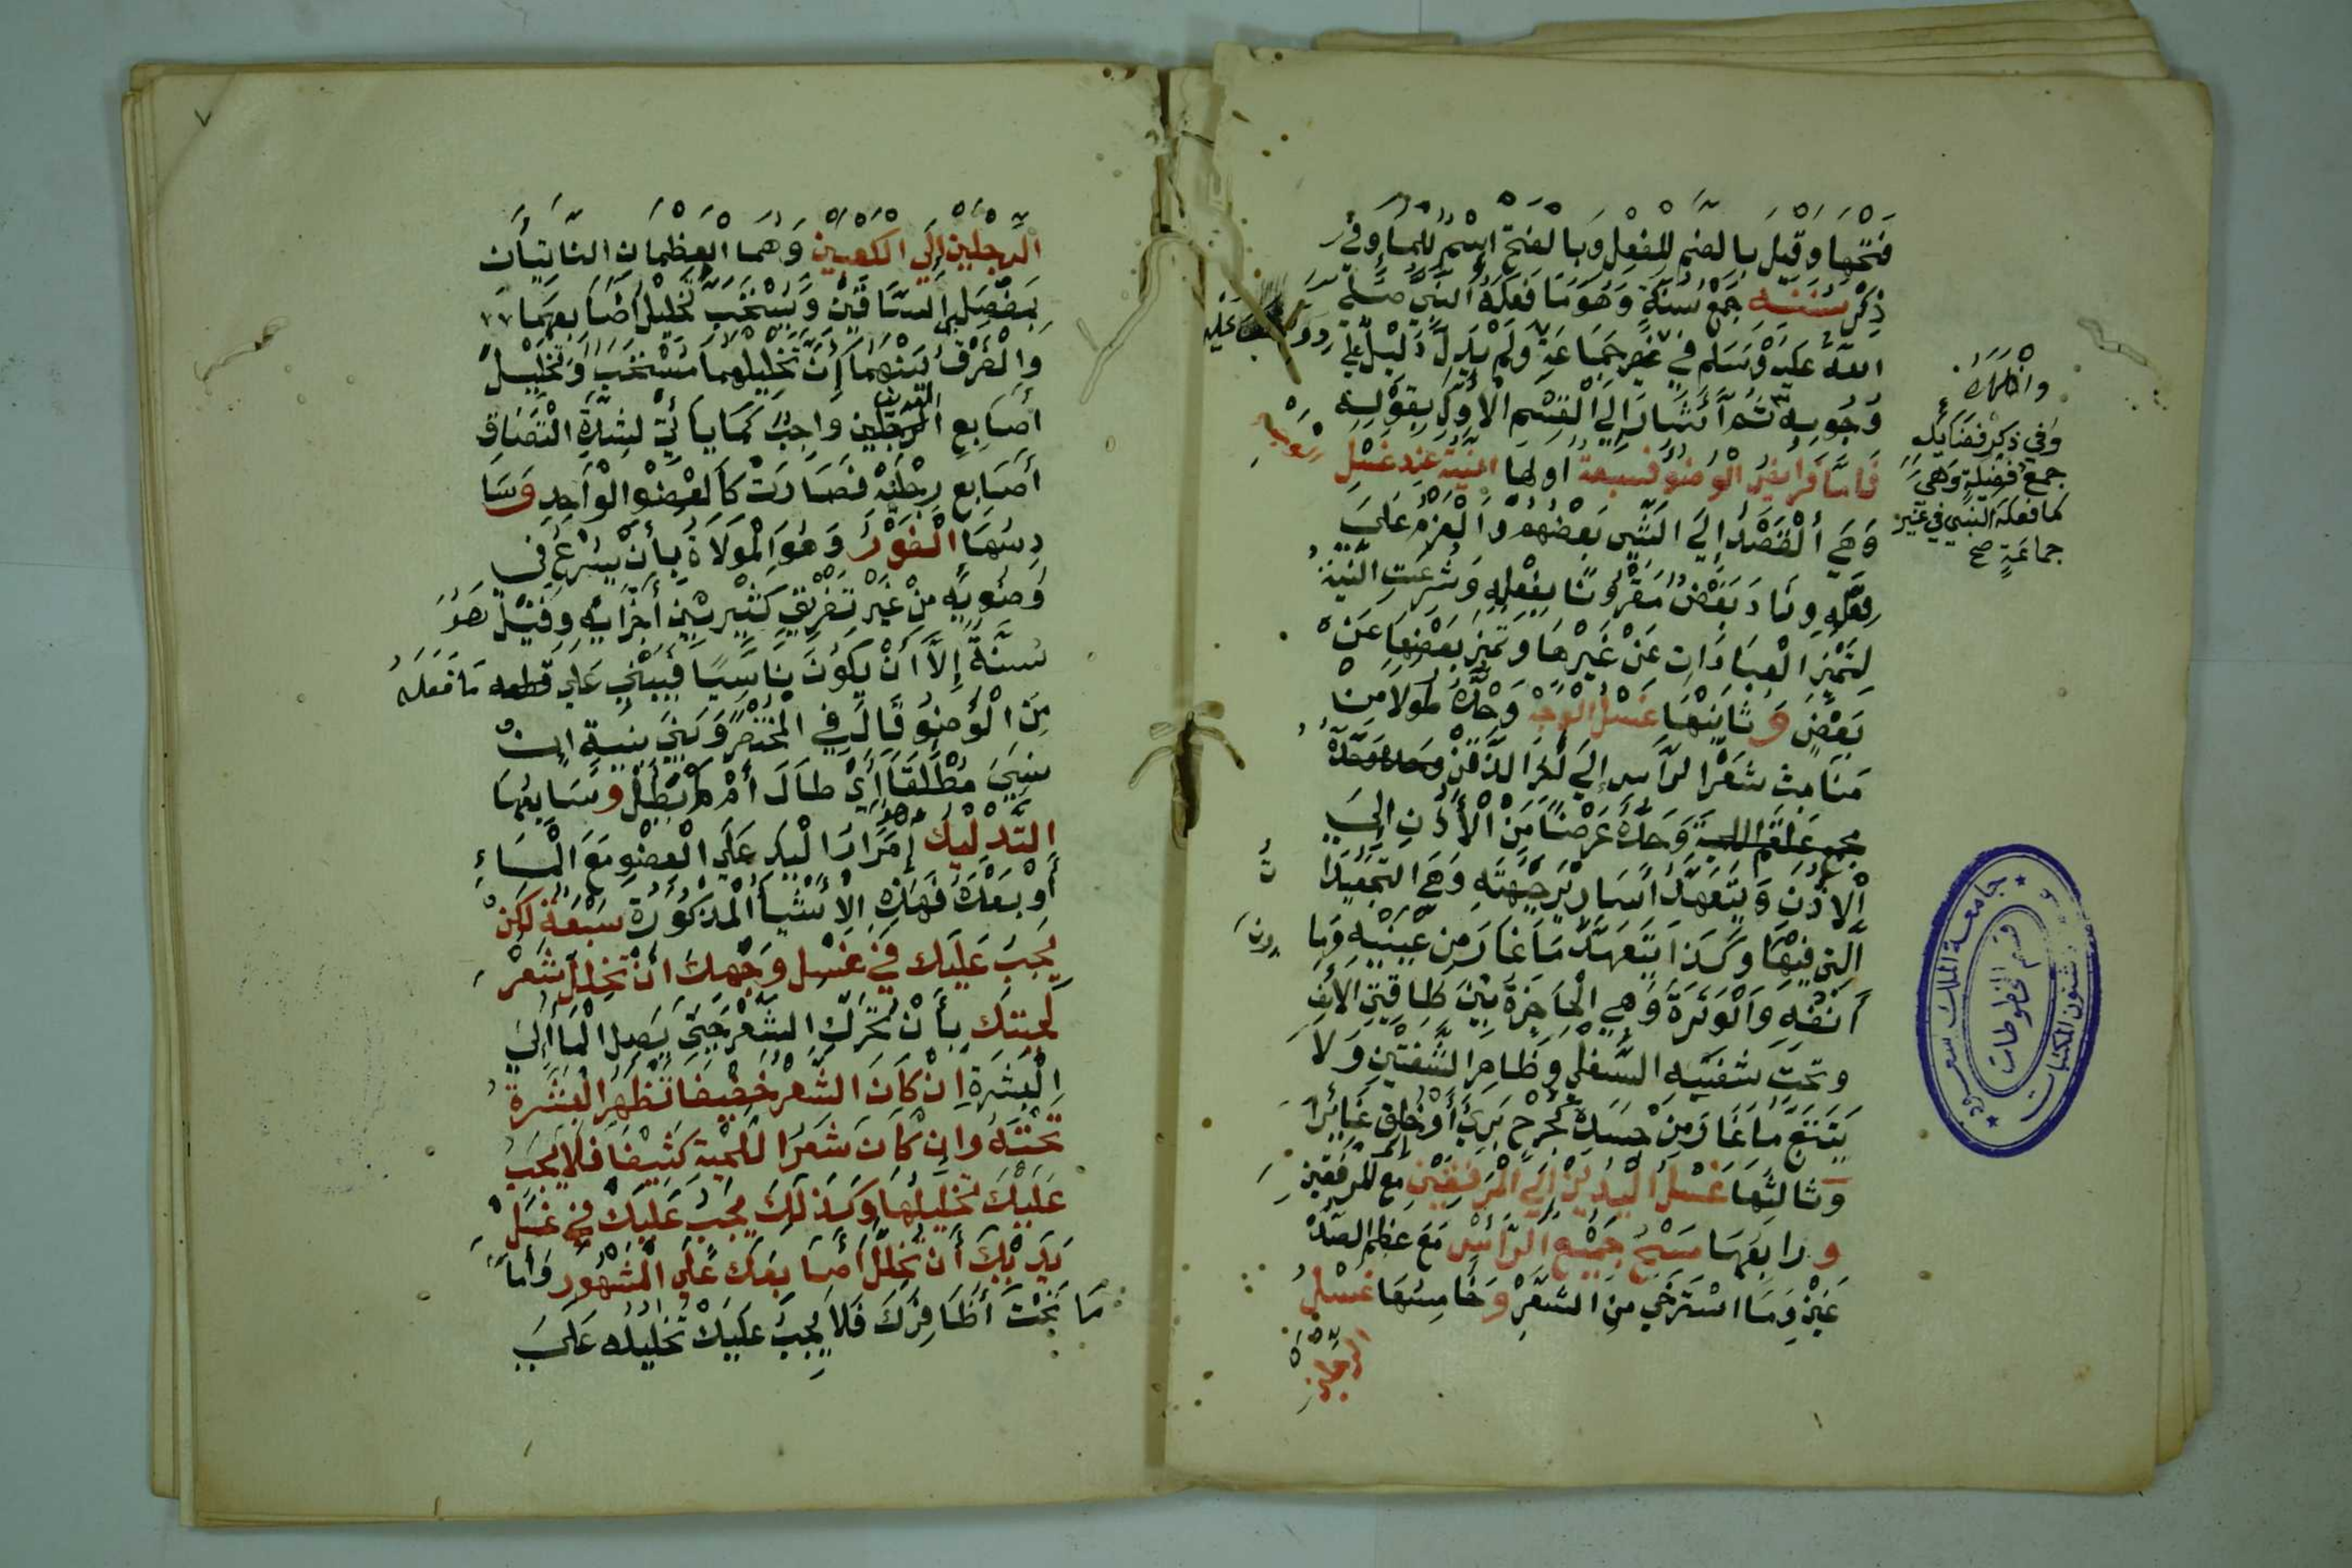 فتحها وقيل بالضم للفعل وبالفتح اسم للماء وفي
ذكر سننه جمع سنة وهو ما فعله النبي صلى
الله عليه وسلم في غير جماعة ولم يدل دليل على
وجوبه ثم أشار إلى القسم الأول بقوله
فأما فرائض الوضوء فسبعة أولها النية عند غسل
وهي القصد إلى الشيء بعضهم والعزم على
فعله وزاد بعض مقرونا بفعله وشرعت النية
لتميز العبادات عن غيرها وتميز بعضها عن
بعض وثانيتها غسل الوجه وحده طولا من
منابت شعر الرأس إلى آخر الذقن
وحده عرضا من الأذن إلى
الأذن ويتعهد أسارير جبهته وهي التجعيدات
التي فيها وكذا يتعهد ما غار من عينيه وما دون
أنفه والوترة وهي الحاجزة بين طاقتي الأنف
وتحت شفتيه السفلى وظاهر الشفتين ولا
يتتبع ما غار من جسده كجرح برئ أو خلق غائرا
وثالثها غسل اليدين إلى المرفقين مع المرفقين
ورابعها مسح جميع الرأس مع عظم الصد
غين وما استرخى من الشعر وخامسها غسل
الرجلين
وفي ذكر فضائله
جمع فضيلة وهي
ما فعله النبي في غير
جماعة صح
جامعة الملك سعود
قسم المخطوطات
شئون المكتبات
٧
الرجلين إلى الكعبين وهما العظمان الناتيان
بمفصلي الساقين ويستحب تخليل أصابعهما
والفرق بينهما إن تخليلهما مستحب وتخليل
أصابع اليدين واجب كما يأتي لشدة التصاق
أصابع رجليه فصارت كالعضو الواحد وسا
دسها الفور وهو الموالاة بأن يشرع في
وضوئه من غير تفريق كثير بين أجزائه وقيل هو
سنة إلا أن يكون ناسيا فيبني على ما فعله
من الوضوء قال في المختصر وبنى بنية إن
نسي مطلقا أي طال أم لم يطل وسابعها
التدليك وهو إمرار اليد على العضو مع الماء
أو بعده فهذه الأشياء المذكورة سبعة لكن
يجب عليك في غسل وجهك أن تخلل شعر
لحيتك بأن تحرك الشعر حتى يصل الماء إلى
البشرة إن كان الشعر خفيفا تظهر البشرة
تحته وإن كان شعر اللحية كثيفا فلا يجب
عليك تخليلها وكذلك يجب عليك في غسل
يديك أن تخلل أصابعك على المشهور وأما
ما تحت أظافرك فلا يجب عليك تخليله على